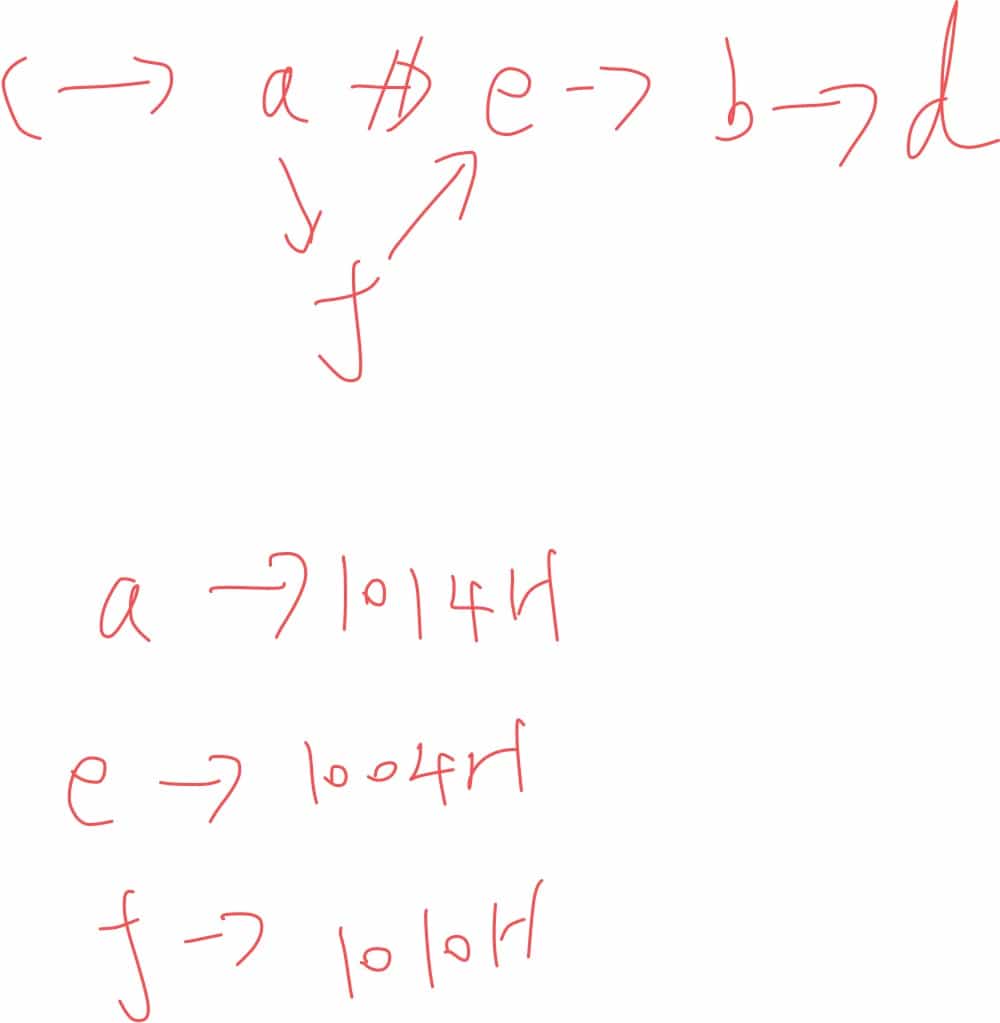 c → a ↛ e → b → d
f
a → 1014H
e → 1004H
f → 1010H